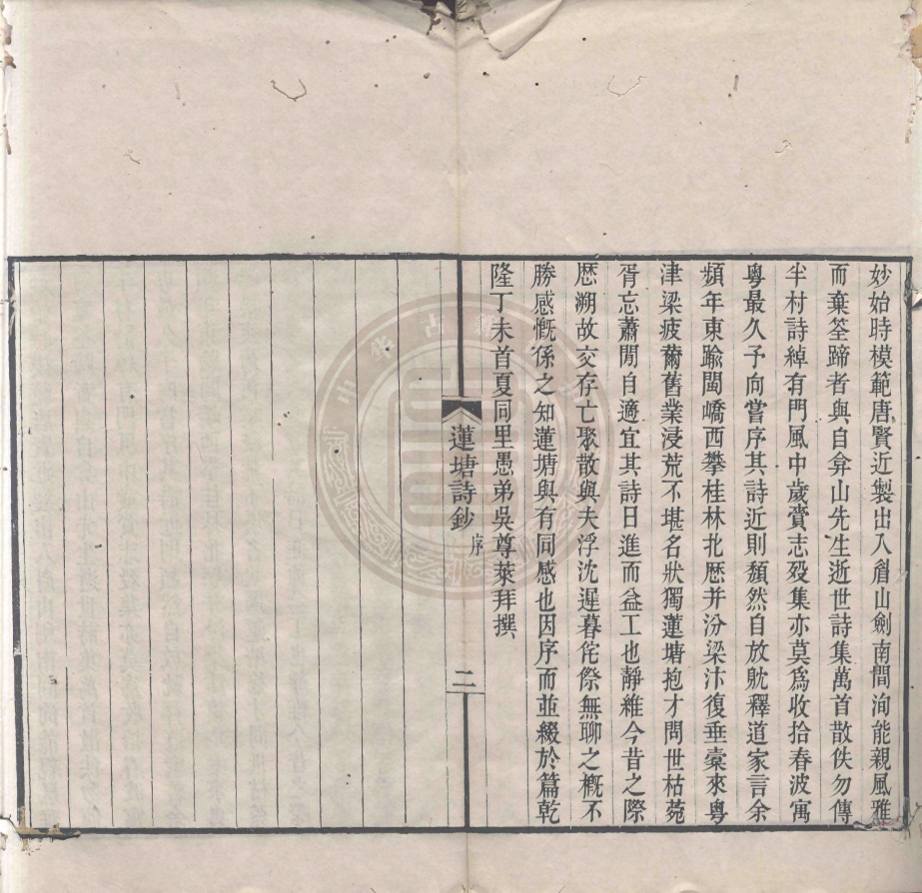 妙始時模範唐賢近製出入眉山劍南間洵能親風雅
而棄筌蹄者與自弇山先生逝世詩集萬首散佚勿傳
半村詩綽有門風中歲賫志歿集亦莫爲收拾春波寓
粵最久予向嘗序其詩近則頽然自放躭釋道家言余
頻年東踰閩嶠西攀桂林北歷并汾梁汴復垂槖來粵
津梁疲薾舊業浸荒不堪名狀獨蓮塘抱才問世枯菀
胥忘蕭閒自適宜其詩日進而益工也靜維今昔之際
歷溯故交存亡聚散與夫浮沈遲暮侘傺無聊之槪不
勝感慨係之知蓮塘與有同感也因序而並綴於篇乾
隆丁未首夏同里愚弟吳尊萊拜撰
蓮塘詩鈔 序 二